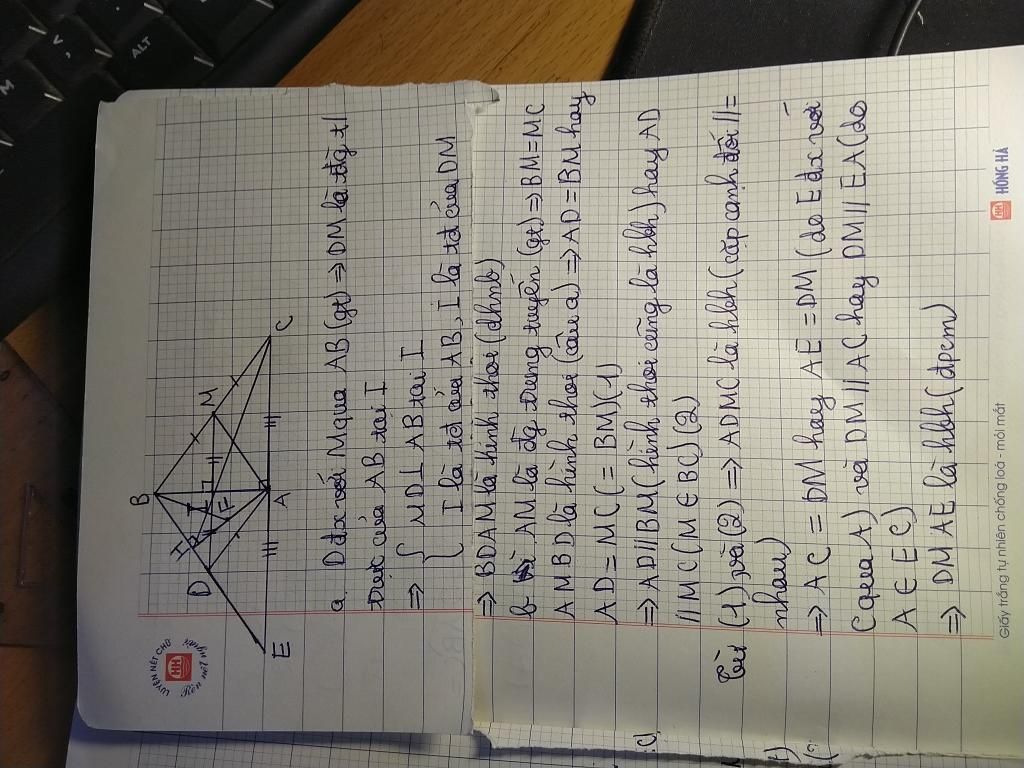 LUYỆN NÉT CHỮ
HH
Rèn nết người
B
H
D
I
M
F
E
A
C
a. D đx với M qua AB (gt) => DM là đg t/
trực của AB tại I
=> { MD ⊥ AB tại I
I là tđ của AB, I là tđ của DM
=> BDAM là hình thoi (dhnb)
b- Vì AM là đg trung tuyến (gt) => BM = MC
AMBD là hình thoi (câu a) => AD = BM hay
AD = MC (= BM) (1)
=> AD // BM (hình thoi cũng là hbh) hay AD
// MC (M ∈ BC) (2)
Từ (1) và (2) => ADMC là hbh (cặp cạnh đối // =
nhau)
=> AC = DM hay AE = DM (do E đx với
C qua A) và DM // AC hay DM // EA (do
A ∈ EC)
=> DMAE là hbh (đpcm)
Giấy trắng tự nhiên chống loá - mỏi mắt
HH HỒNG HÀ
ALT
M